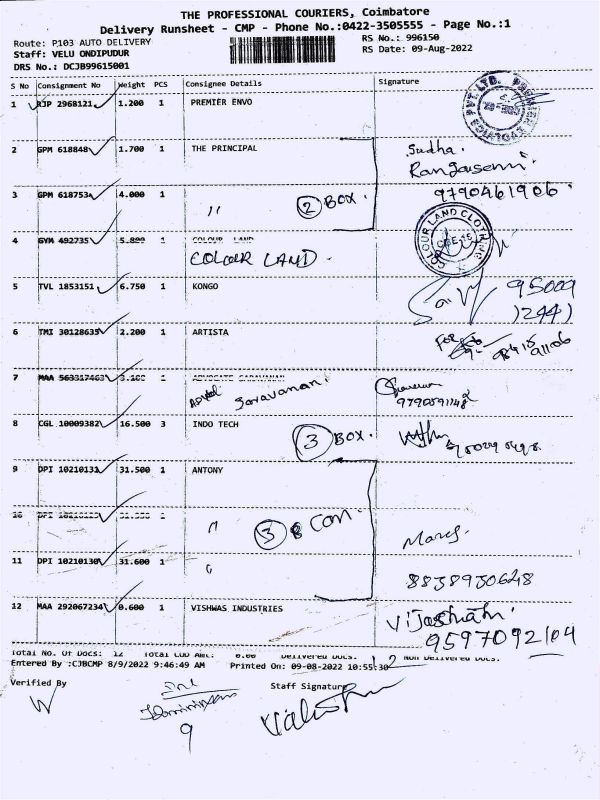 THE PROFESSIONAL COURIERS, Coimbatore
Delivery Runsheet - CMP - Phone No.:0422-3505555 - Page No.:1
Route: P103 AUTO DELIVERY
RS No.: 996150
Staff: VELU ONDIPUDUR
RS Date: 09-Aug-2022
DRS No.: DCJB99615001
S No Consignment No Weight PCS Consignee Details Signature
1 RJP 2968121 1.200 1 PREMIER ENVO
2 GPM 618848 1.700 1 THE PRINCIPAL Sudha.
3 GPM 618753 4.000 1 " 2 BOX. 9790461906
4 GYM 492735 5.800 1 COLOUR LAND COLOUR LAND CLOTHING
COLOUR LAND.
5 TVL 1853151 6.750 1 KONGO 95009
6 TMI 30128635 2.200 1 ARTISTA
7 MAA 563317463 3.100 1 ADVOCATE SARAVANAN
Saravanan.
8 CGL 10009382 16.500 3 INDO TECH 3 BOX.
9 DPI 10210131 31.500 1 ANTONY
10 DPI 1 " 3 Con.
11 DPI 10210130 31.600 1 " 8838930628
12 MAA 292067234 0.600 1 VISHWAS INDUSTRIES
9597092104
Total No. Of Docs: 12 Total COD Amt: 0.00 Delivered Docs. 12 Non Delivered Docs.
Entered By :CJBCMP 8/9/2022 9:46:49 AM Printed On: 09-08-2022 10:55:30
Verified By Staff Signature
9